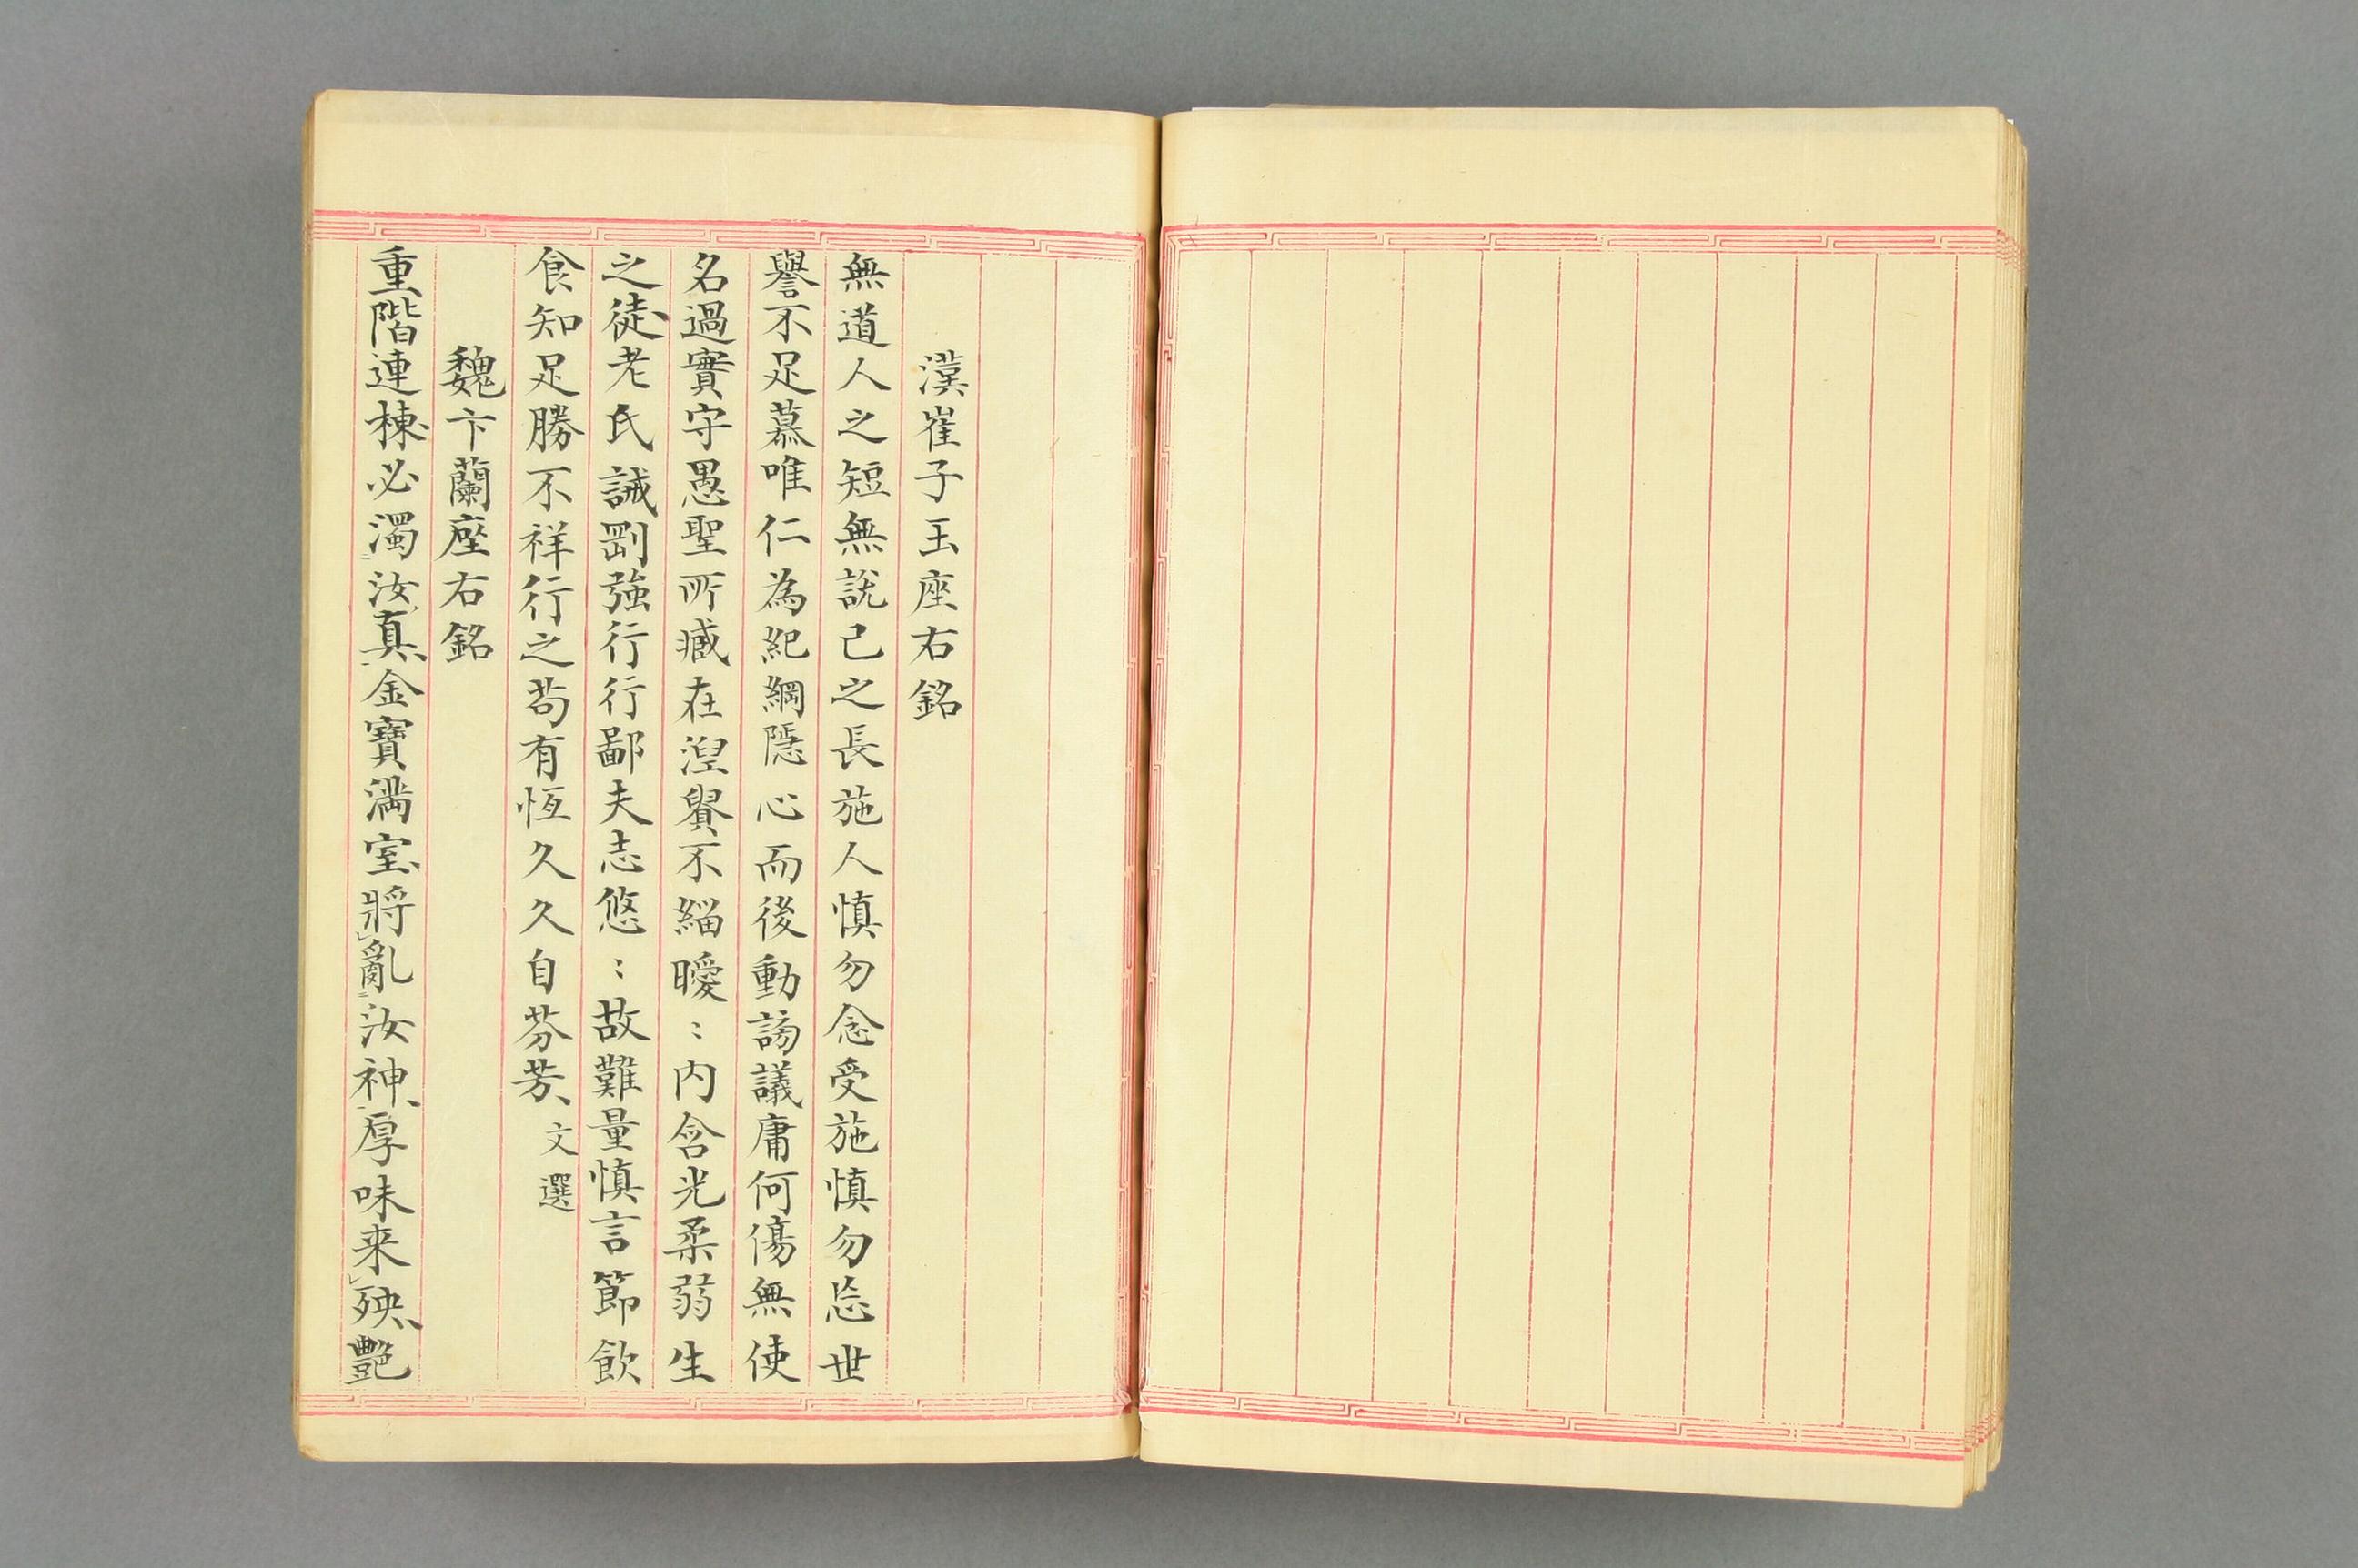 漢崔子玉座右銘
無道人之短無說己之長施人慎勿念受施慎勿忘世
譽不足慕唯仁為紀綱隱心而後動謗議庸何傷無使
名過實守愚聖所臧在涅貴不緇曖：內含光柔弱生
之徒老氏誡剛強行行鄙夫志悠：故難量慎言節飲
食知足勝不祥行之苟有恆久久自芬芳、文選
魏卞蘭座右銘
重階連棟、必濁汝真、金寶滿室、將亂汝神、厚味来殃、艷